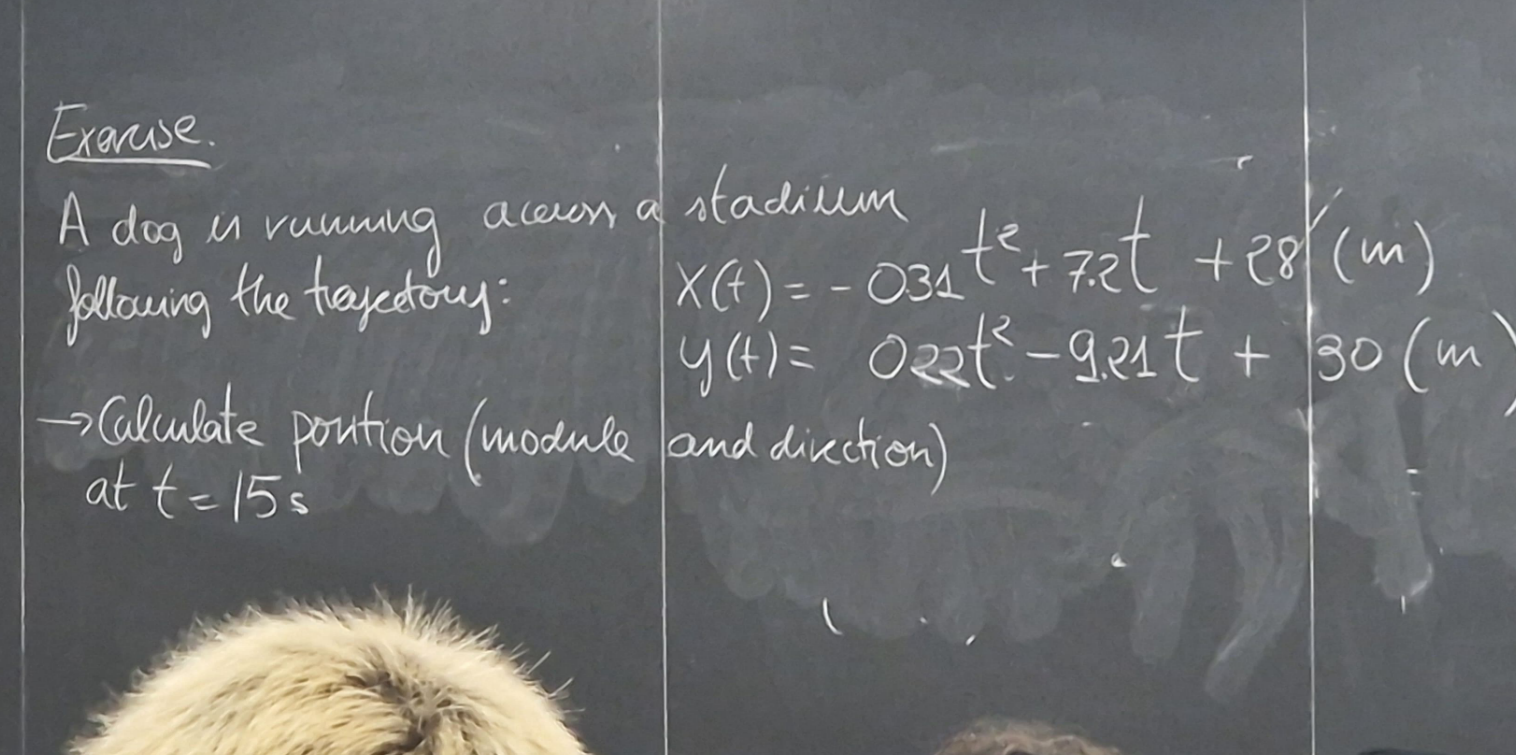 Exercise.
A dog is running across a stadium
following the trajectory:
x(t) = - 031t² + 7.2t + 28 (m)
y(t) = 022t² - 9.21t + 30 (m)
→ Calculate position (module and direction)
at t = 15 s